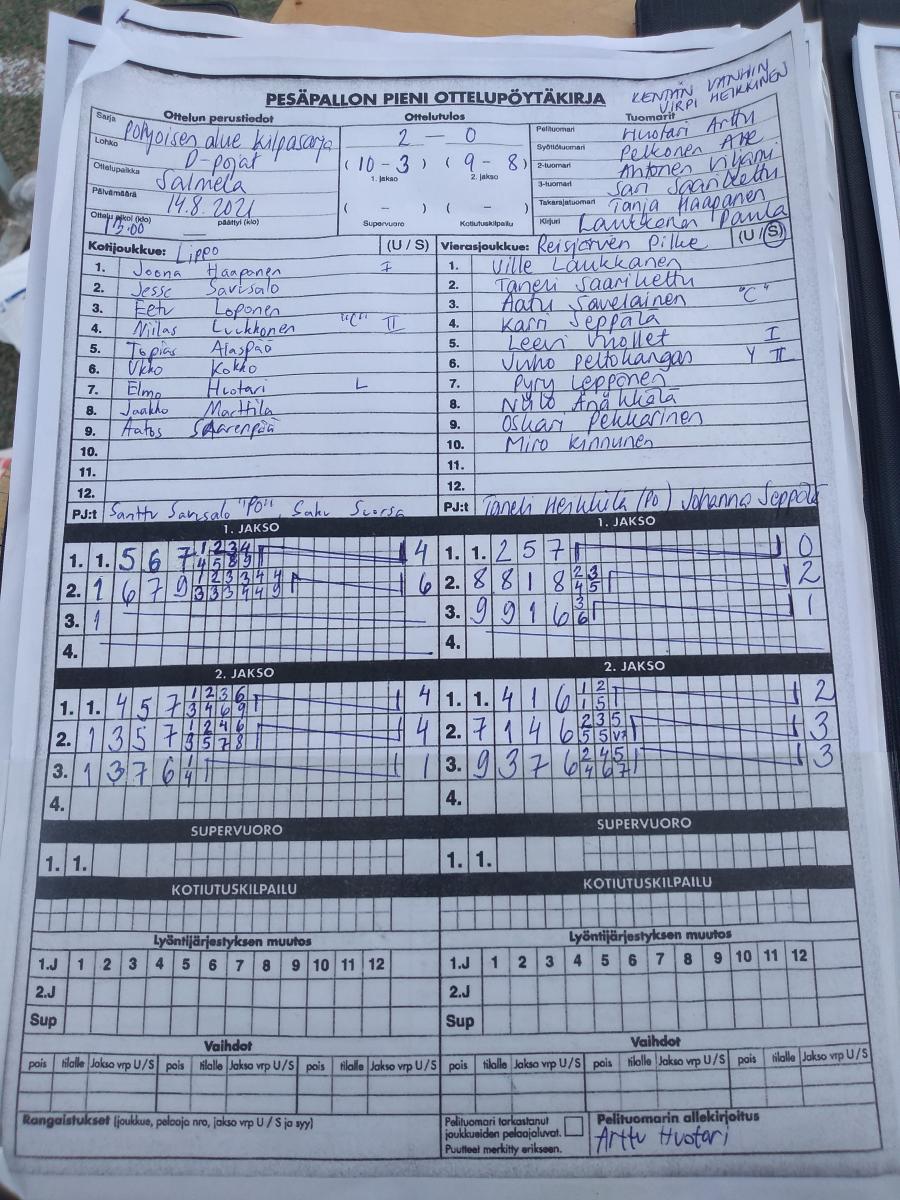 PESÄPALLON PIENI OTTELUPÖYTÄKIRJA
KENTÄN VANHIN
VIRPI HEIKKINEN
Ottelun perustiedot
Ottelutulos
Tuomarit
Sarja Pohjoisen alue kilpasarja
Lohko D-pojat
Ottelupaikka Salmela
Päivämäärä 14.8.2021
Ottelu alkoi (klo) 13.00 päättyi (klo)
2 — 0
(10 - 3) (9 - 8)
1. jakso 2. jakso
( - ) ( - )
Supervuoro Kotiutuskilpailu
Pelituomari Huotari Arttu
Syöttötuomari Pelkonen
2-tuomari Antonen Viljami
3-tuomari Sari Saarikettu
Takarajatuomari Tanja Haaponen
Kirjuri Laukkonen Paula
Kotijoukkue: Lippo (U / S)
1. Joona Haaponen I
2. Jesse Savisalo
3. Eetu Loponen
4. Niilas Luukkonen "C" II
5. Topias Alaspää
6. Ukko Kokko
7. Elmo Huotari L
8. Jaakko Marttila
9. Aatos Saarenpää
10.
11.
12.
PJ:t Santtu Savisalo "PO", Saku Suorsa
Vierasjoukkue: Reisjärven Pilke (U / S)
1. Ville Laukkanen
2. Taneli Saarikettu
3. Aatu Savelainen "C"
4. Karri Seppälä
5. Leevi Vuollet I
6. Juho Peltokangas Y II
7. Pyry Lepponen
8. Niilo Änäkkälä
9. Oskari Pekkarinen
10. Miro Kinnunen
11.
12.
PJ:t Taneli Heikkilä (PO) Johanna Seppälä
1. JAKSO
1. 1. 5 6 7 1 2 3 4 4
4 5 8 9
2. 1 6 7 9 1 2 3 3 4 4 6
3 3 3 4 4 9
3. 1
4.
1. JAKSO
1. 1. 2 5 7 0
2. 8 8 1 8 2 3 2
4 5
3. 9 9 1 6 3 1
6
4.
2. JAKSO
1. 1. 4 5 7 1 2 3 6 4
3 4 6 9
2. 1 3 5 7 1 2 4 6 4
3 5 7 8
3. 1 3 7 6 1 1
4
4.
2. JAKSO
1. 1. 4 1 6 1 2 2
1 5
2. 7 1 4 6 2 3 5 3
5 5 V7
3. 9 3 7 6 2 4 5 3
4 6 7
4.
SUPERVUORO
1. 1.
SUPERVUORO
1. 1.
KOTIUTUSKILPAILU
KOTIUTUSKILPAILU
Lyöntijärjestyksen muutos
1.J 1 2 3 4 5 6 7 8 9 10 11 12
2.J
Sup
Lyöntijärjestyksen muutos
1.J 1 2 3 4 5 6 7 8 9 10 11 12
2.J
Sup
Vaihdot
pois tilalle Jakso vrp U / S pois tilalle Jakso vrp U / S pois tilalle Jakso vrp U / S
Vaihdot
pois tilalle Jakso vrp U / S pois tilalle Jakso vrp U / S pois tilalle Jakso vrp U / S
Rangaistukset (joukkue, pelaaja nro, jakso vrp U / S ja syy)
Pelituomari tarkastanut
joukkueiden pelaajaluvat.
Puutteet merkitty erikseen.
Pelituomarin allekirjoitus
Arttu Huotari